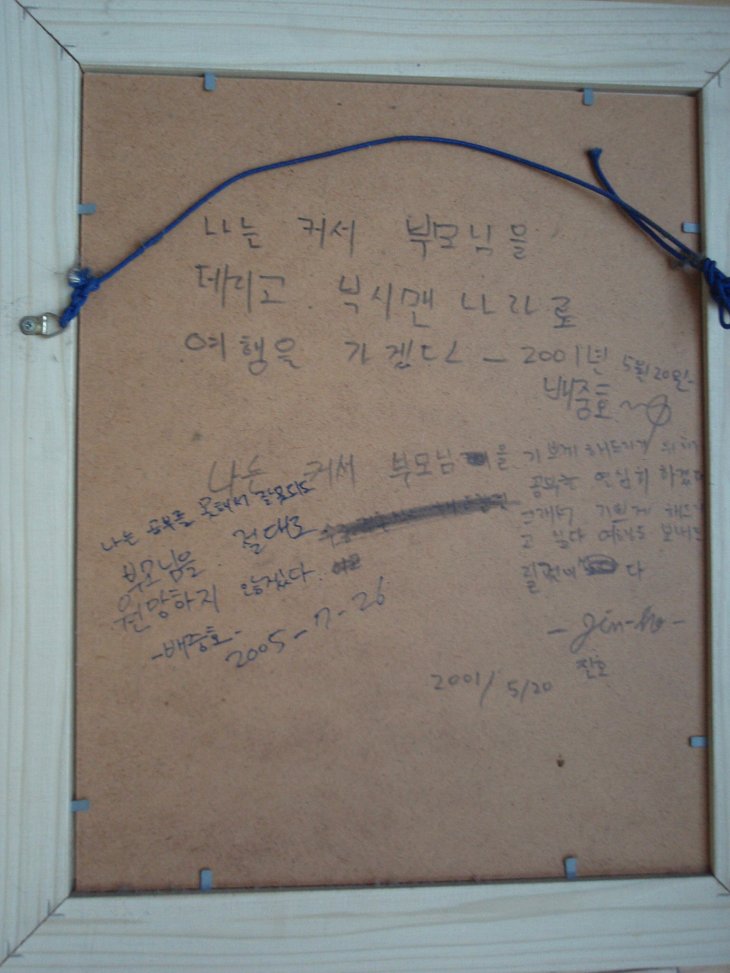 나는 커서 부모님을
데리고 부시맨 나라로
여행을 가겠다 - 2001년 5월 20일-
배중호
나는 커서 부모님을 기쁘게 해드리기 위해
공부는 열심히 하겠다
기쁘게 해드
고 싶다 여행도 보내드
릴 다
- Jin-ho -
진호
2001/5/20
나는 공부를 못해서 잘못되도
부모님을 절대로
원망하지 않겠다.
-배중호-
2005-7-26